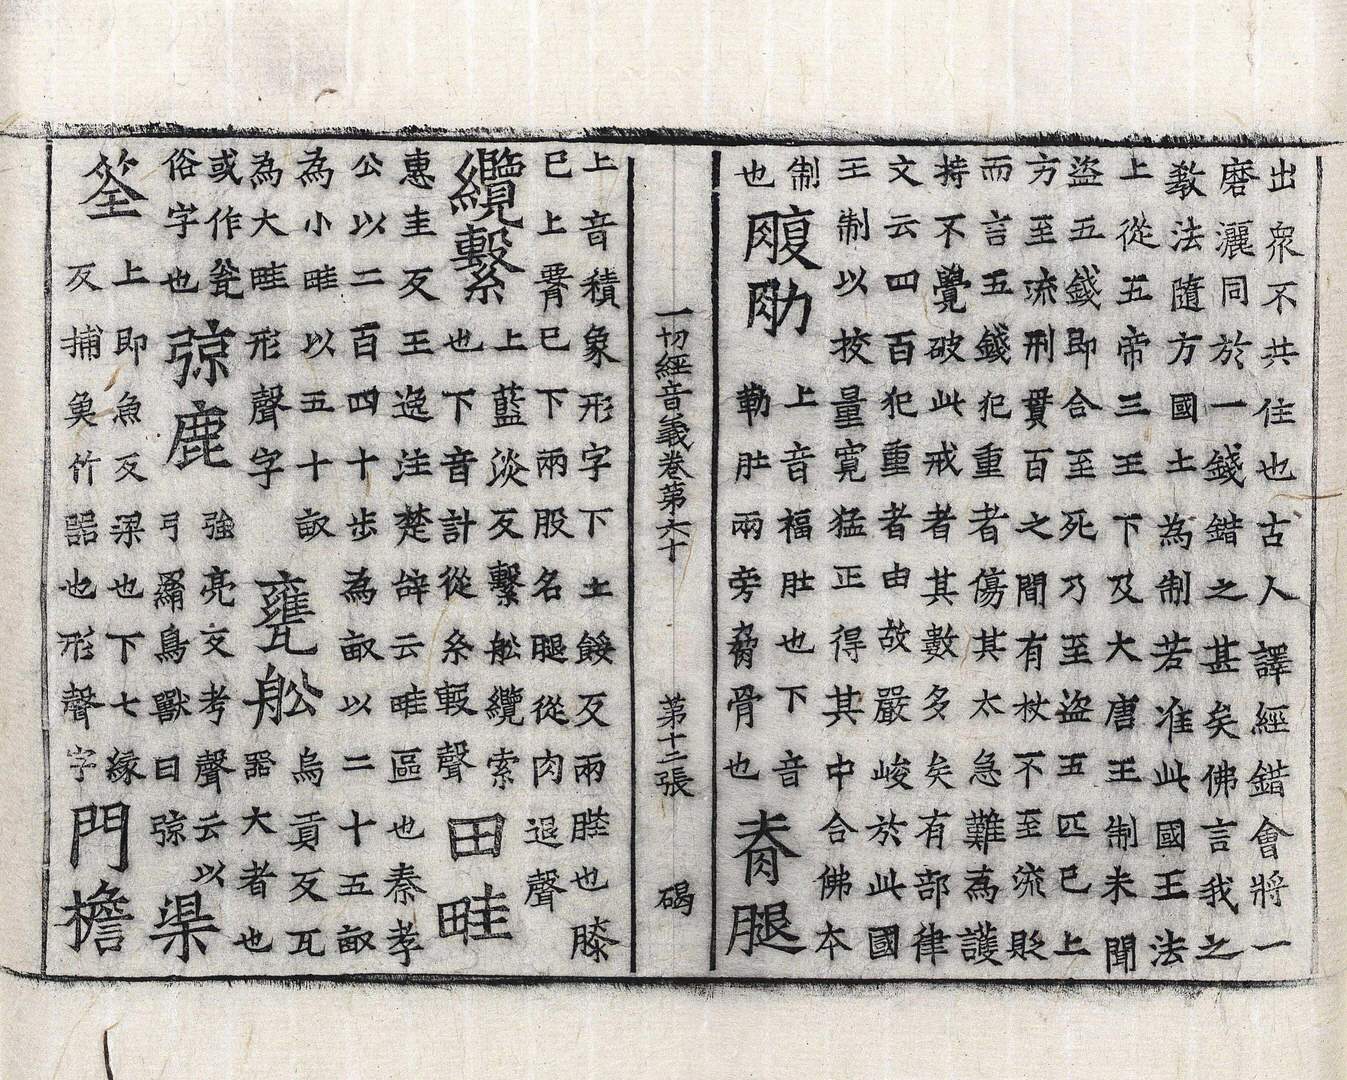 出衆不共住也古人譯經錯會將一
磨灑同於一錢錯之甚矣佛言我之
敎法隨方國土為制若准此國王法
上從五帝三王下及大唐王制未聞
盜五錢即合至死乃至盜五匹已上
方至流刑貫百之間有杖不至流貶
而言五錢犯重者傷其太急難為護
持不覺破此戒者其數多矣有部律
文云四百犯重者由故嚴峻於此國
王制以挍量寛猛正得其中合佛本
制
也
腹肋
上音福肚也下音
勒肚兩旁脅骨也
脊腿
一切經音義卷第六十 第十二張 碣
上音積象形字下土餧反兩䏶也膝
已上䐡已下兩股名腿從肉退聲
纜繫
上藍淡反繫舩纜索
也下音計從糸毄聲
田畦
惠圭反王逸注楚辞云畦區也秦孝
公以二百四十步為畝以二十五畝
為小畦以五十畝
為大畦形聲字
甕舩
烏貢反瓦
器大者也
或作瓮
俗字也
弶鹿
強亮反考聲云以
弓羂鳥獸曰弶
渠
筌
上即魚反渠也下七緣
反捕魚竹器也形聲字
門檐